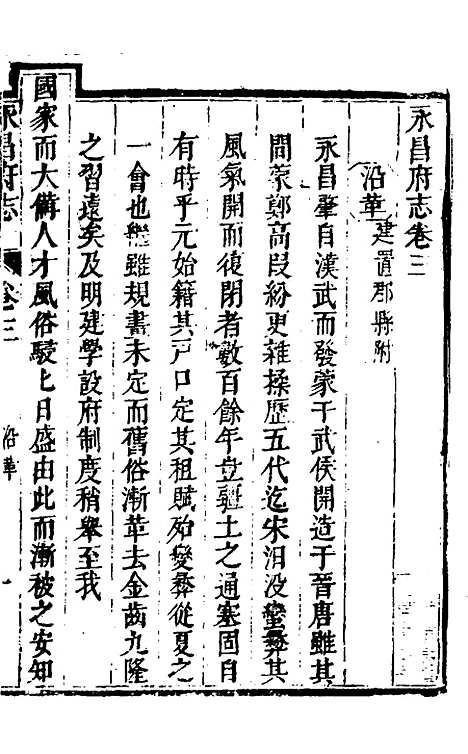 永昌府志卷三
沿革 建置郡縣附
永昌肇自漢武而發蒙于武侯開造于晉唐雖其
間蒙鄭高段紛更雜揉歷五代迄宋汨沒蠻彝其
風氣開而復閉者數百餘年豈疆土之通塞固自
有時乎元始籍其戸口定其租賦殆變彝從夏之
一會也歟雖規畫未定而舊俗漸革去金齒九隆
之習遠矣及明建學設府制度稍舉至我
國家而大備人才風俗駸上日盛由此而漸被之安知
永昌府志 卷三 沿革 一